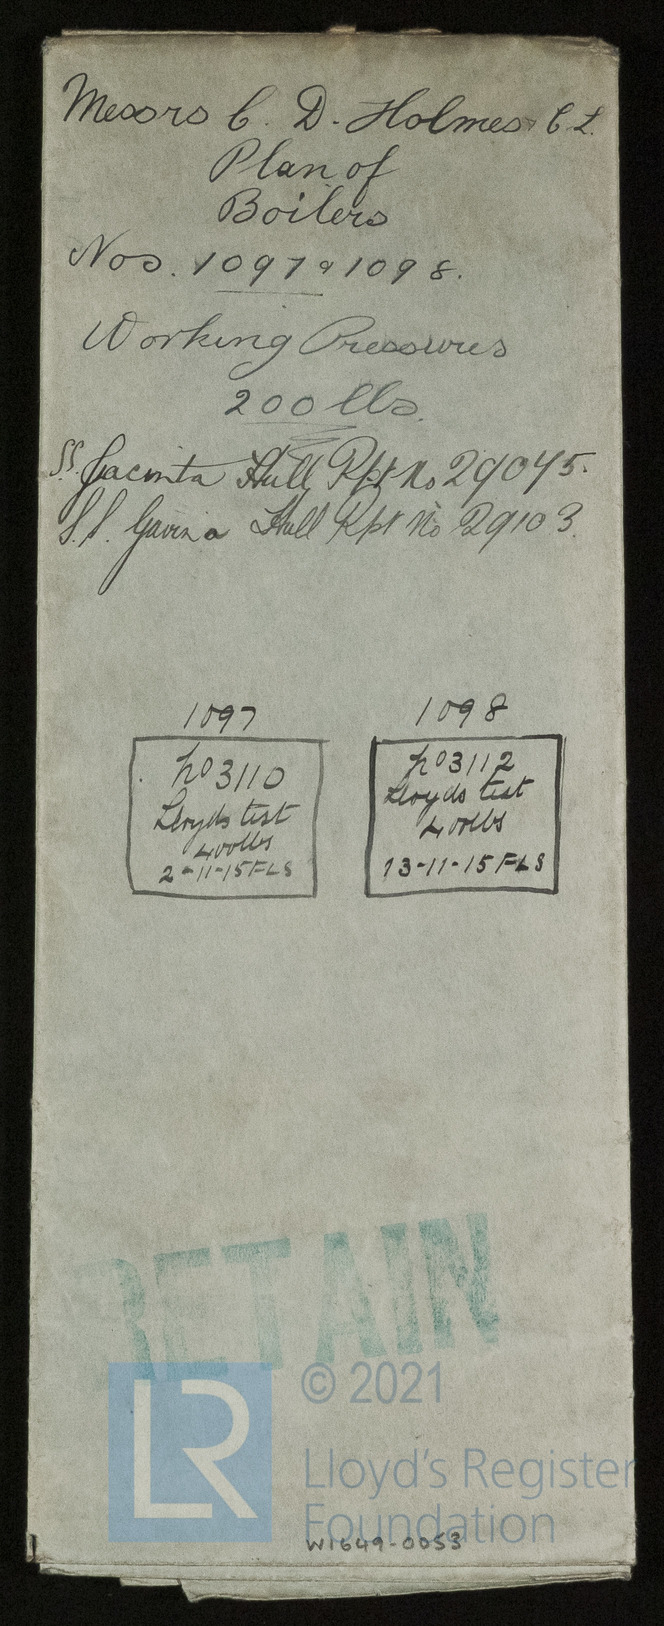 Messrs C. D. Holmes & Co L.
Plan of
Boilers
Nos. 1097 & 1098.
Working Pressures
200 lbs.
S.S. Jacinta Hull Rpt No 29045.
S.S. Gavina Hull Rpt No 29103.
1097
No 3110
Lloyds test
400 lbs
2-11-15 FLS
1098
No 3112
Lloyds test
400 lbs
13-11-15 FLS
RETAIN
LR
© 2021
Lloyd's Register
Foundation
W1649-0053